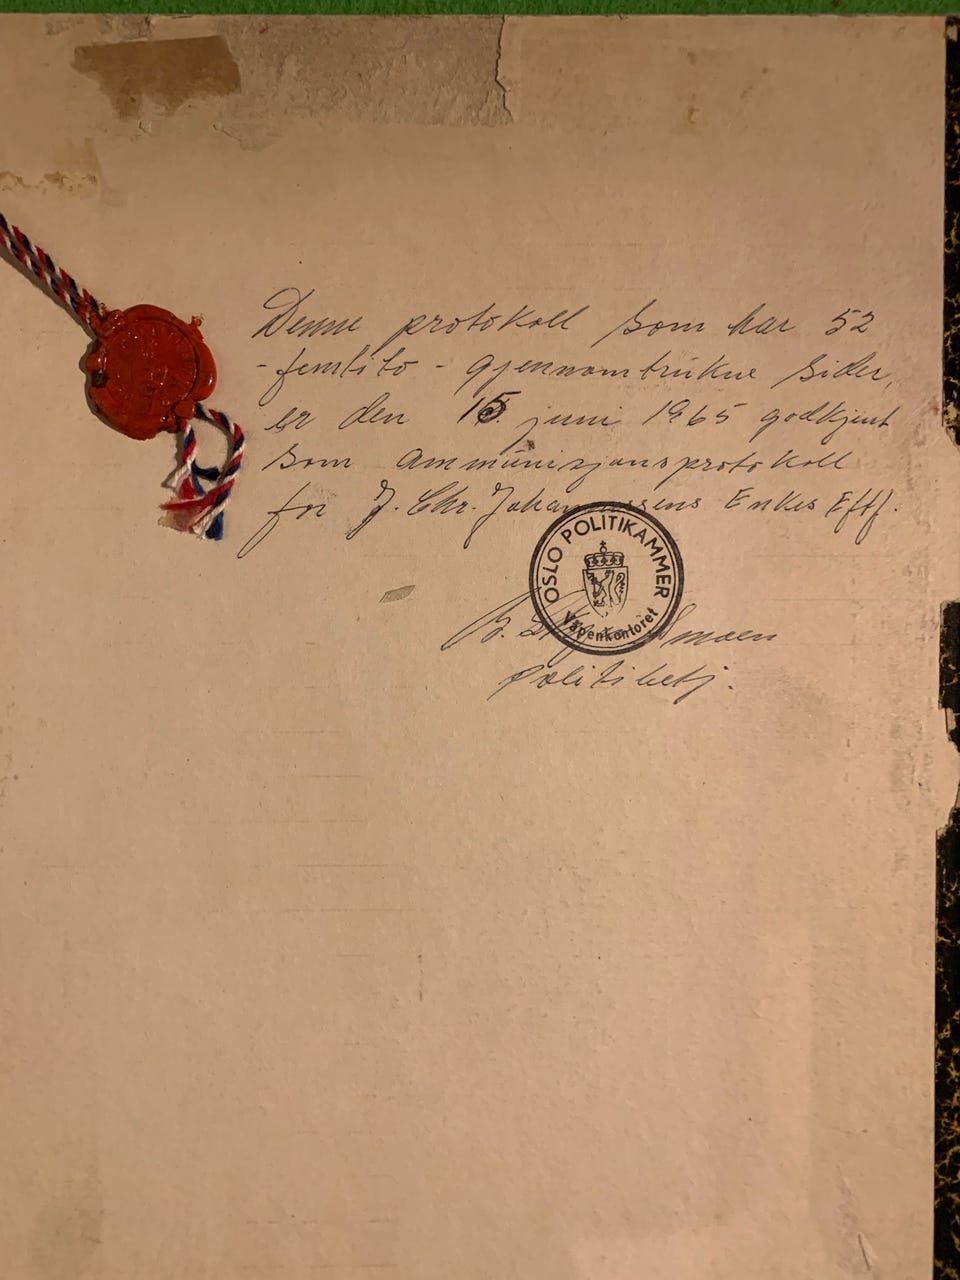 Denne protokoll som har 52
- femtito - gjennomtrukne sider,
er den 15. juni 1965 godkjent
som ammunisjonsprotokoll
for J. Chr. Johannessens Enkes Eftf.
OSLO POLITIKAMMER
Våpenkontoret
politibetj.